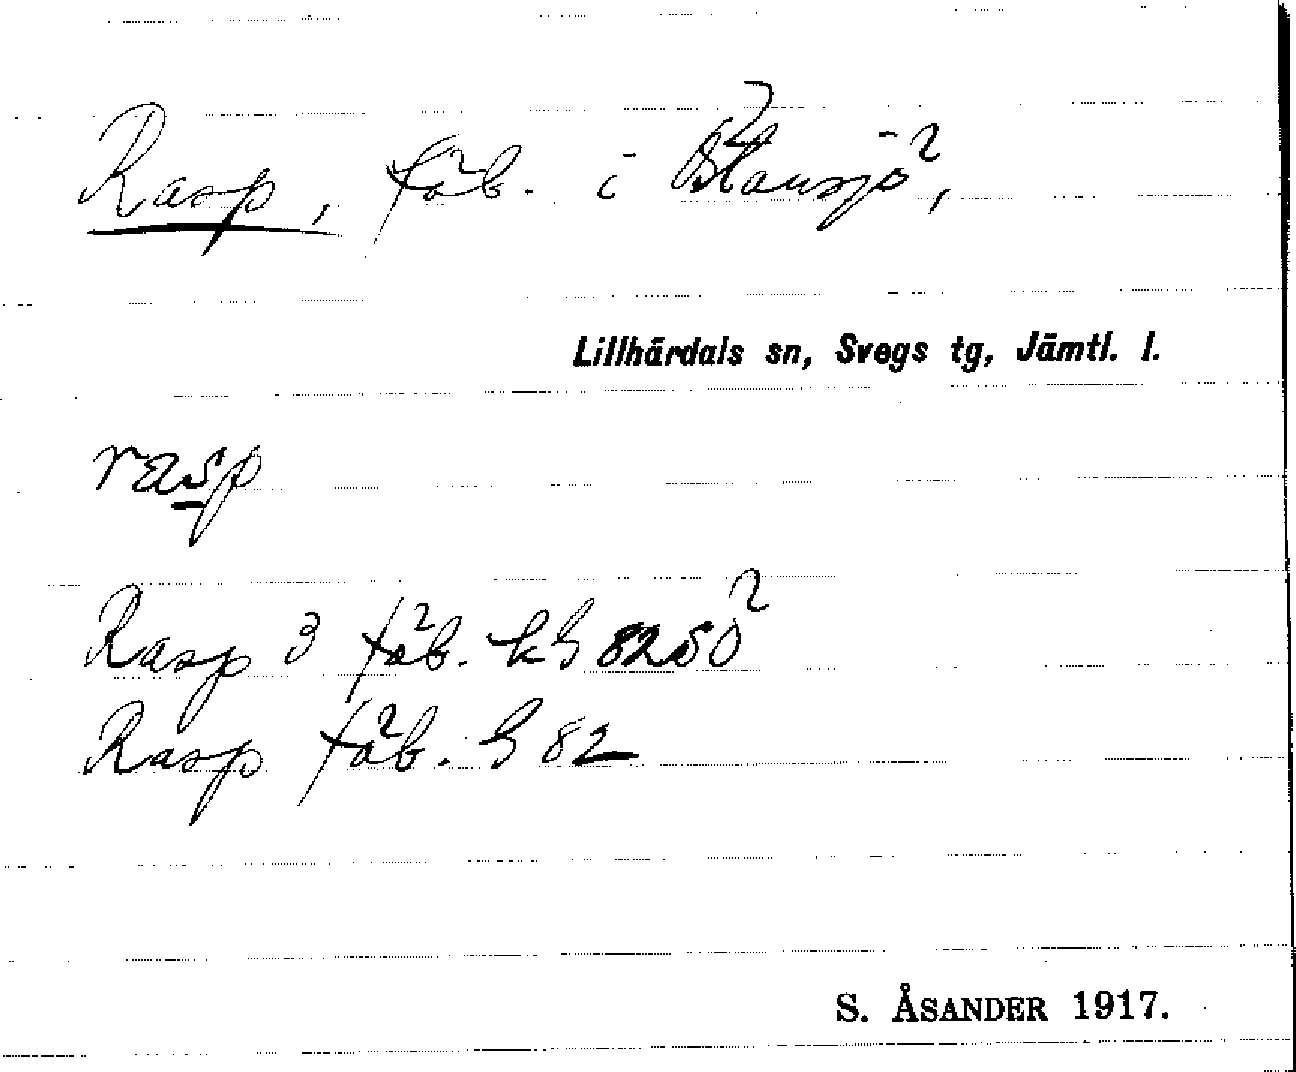 Rasp, fäb. i Blansjö,
Lillhärdals sn, Svegs tg, Jämtl. l.
rasp
Rasp 3 fäb. kG 82 SO
Rasp fäb. G 82
S. ÅSANDER 1917.